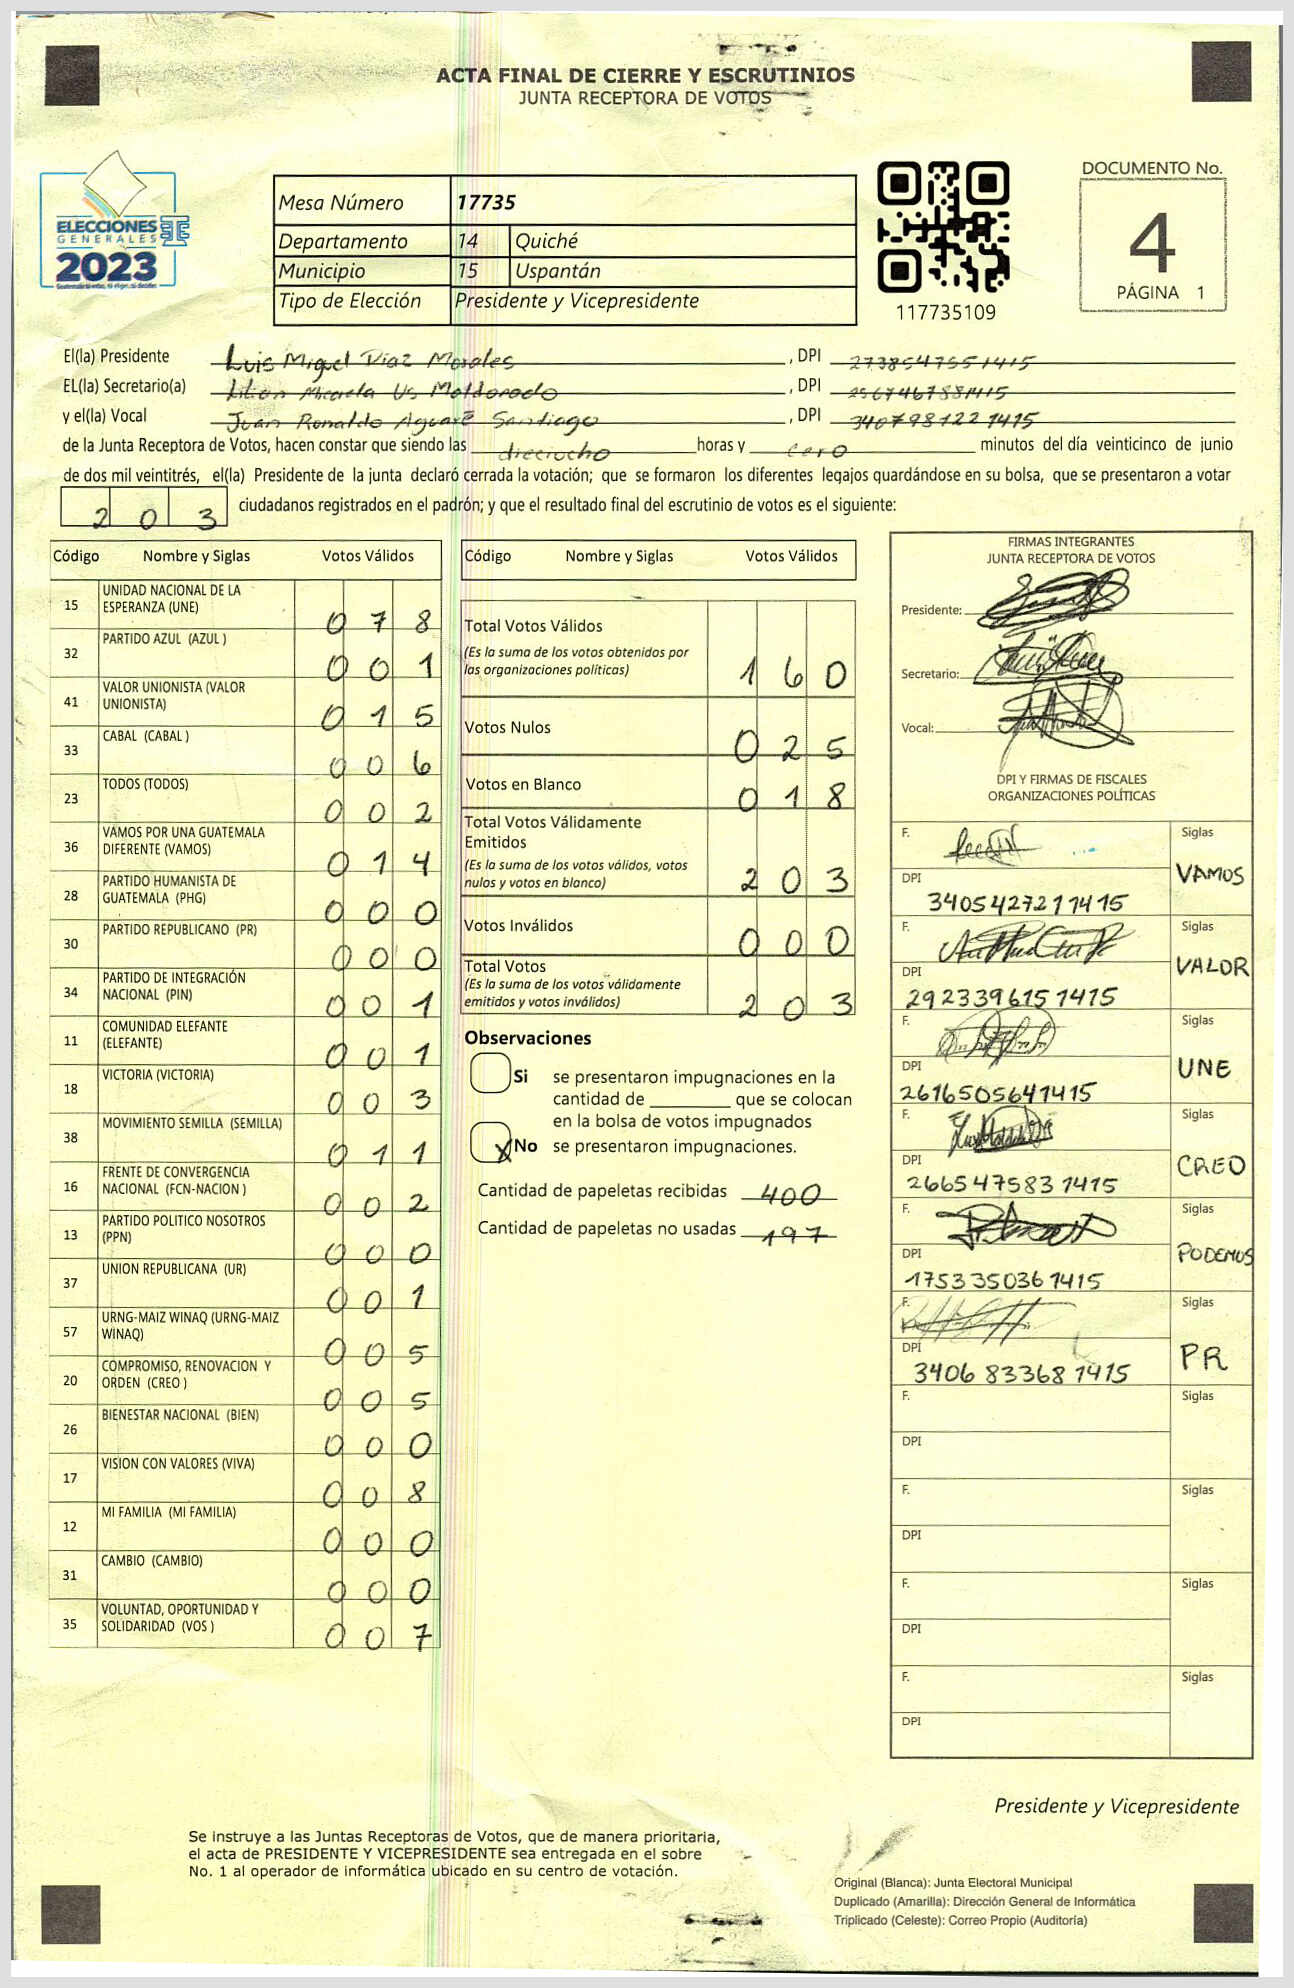 ACTA FINAL DE CIERRE Y ESCRUTINIOS
JUNTA RECEPTORA DE VOTOS
ELECCIONES
GENERALES
2023
Mesa Número 17735
Departamento 14 Quiché
Municipio 15 Uspantán
Tipo de Elección Presidente y Vicepresidente
117735109
DOCUMENTO No.
4
PÁGINA 1
El(la) Presidente Luis Miguel Diaz Morales , DPI 2738547551415
EL(la) Secretario(a) Lilian Micaela Us Maldonado , DPI 2567467881415
y el(la) Vocal Juan Ronaldo Aguaré Santiago , DPI 3407981221415
de la Junta Receptora de Votos, hacen constar que siendo las dieciocho horas y cero minutos del día veinticinco de junio
de dos mil veintitrés, el(la) Presidente de la junta declaró cerrada la votación; que se formaron los diferentes legajos guardándose en su bolsa, que se presentaron a votar
203 ciudadanos registrados en el padrón; y que el resultado final del escrutinio de votos es el siguiente:
Código Nombre y Siglas Votos Válidos
15 UNIDAD NACIONAL DE LA ESPERANZA (UNE) 078
32 PARTIDO AZUL (AZUL ) 001
41 VALOR UNIONISTA (VALOR UNIONISTA) 015
33 CABAL (CABAL ) 006
23 TODOS (TODOS) 002
36 VAMOS POR UNA GUATEMALA DIFERENTE (VAMOS) 014
28 PARTIDO HUMANISTA DE GUATEMALA (PHG) 000
30 PARTIDO REPUBLICANO (PR) 000
34 PARTIDO DE INTEGRACIÓN NACIONAL (PIN) 001
11 COMUNIDAD ELEFANTE (ELEFANTE) 001
18 VICTORIA (VICTORIA) 003
38 MOVIMIENTO SEMILLA (SEMILLA) 011
16 FRENTE DE CONVERGENCIA NACIONAL (FCN-NACION ) 002
13 PARTIDO POLITICO NOSOTROS (PPN) 000
37 UNION REPUBLICANA (UR) 001
57 URNG-MAIZ WINAQ (URNG-MAIZ WINAQ) 005
20 COMPROMISO, RENOVACION Y ORDEN (CREO ) 005
26 BIENESTAR NACIONAL (BIEN) 000
17 VISION CON VALORES (VIVA) 008
12 MI FAMILIA (MI FAMILIA) 000
31 CAMBIO (CAMBIO) 000
35 VOLUNTAD, OPORTUNIDAD Y SOLIDARIDAD (VOS ) 007
Código Nombre y Siglas Votos Válidos
Total Votos Válidos 160
(Es la suma de los votos obtenidos por
las organizaciones políticas)
Votos Nulos 025
Votos en Blanco 018
Total Votos Válidamente
Emitidos 203
(Es la suma de los votos válidos, votos
nulos y votos en blanco)
Votos Inválidos 000
Total Votos 203
(Es la suma de los votos válidamente
emitidos y votos inválidos)
Observaciones
Si se presentaron impugnaciones en la
cantidad de ________ que se colocan
en la bolsa de votos impugnados
X No se presentaron impugnaciones.
Cantidad de papeletas recibidas 400
Cantidad de papeletas no usadas 197
FIRMAS INTEGRANTES
JUNTA RECEPTORA DE VOTOS
Presidente:
Secretario:
Vocal:
DPI Y FIRMAS DE FISCALES
ORGANIZACIONES POLÍTICAS
F. Siglas
VAMOS
DPI 3405427211415
F. Siglas
VALOR
DPI 2923396151415
F. Siglas
UNE
DPI 2616505641415
F. Siglas
CREO
DPI 2665475831415
F. Siglas
PODEMOS
DPI 1753350361415
F. Siglas
PR
DPI 3406833681415
F. Siglas
DPI
F. Siglas
DPI
F. Siglas
DPI
F. Siglas
DPI
Presidente y Vicepresidente
Se instruye a las Juntas Receptoras de Votos, que de manera prioritaria,
el acta de PRESIDENTE Y VICEPRESIDENTE sea entregada en el sobre
No. 1 al operador de informática ubicado en su centro de votación.
Original (Blanca): Junta Electoral Municipal
Duplicado (Amarilla): Dirección General de Informática
Triplicado (Celeste): Correo Propio (Auditoría)